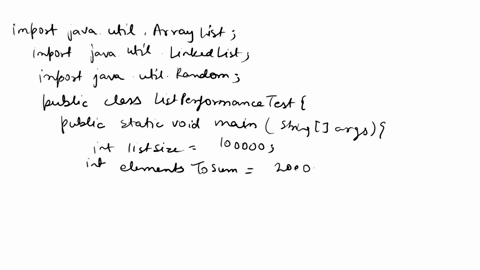 import java.util.ArrayList;
import java util.LinkedList;
import java.util.Random;
public class ListPerformanceTest{
public static void main (String[] args){
int listsize = 100000;
int elementsToSum = 2000